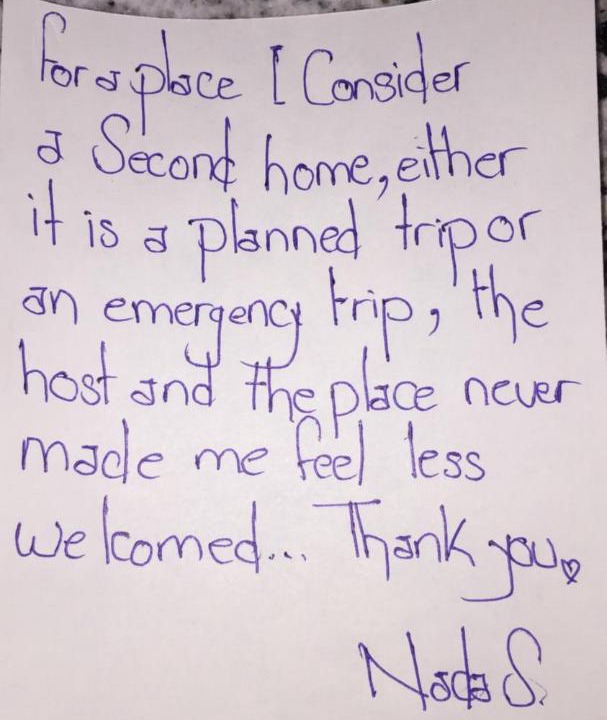 For a place I Consider
a Second home, either
it is a planned trip or
an emergency trip, the
host and the place never
made me feel less
welcomed... Thank you♡
Nada S.